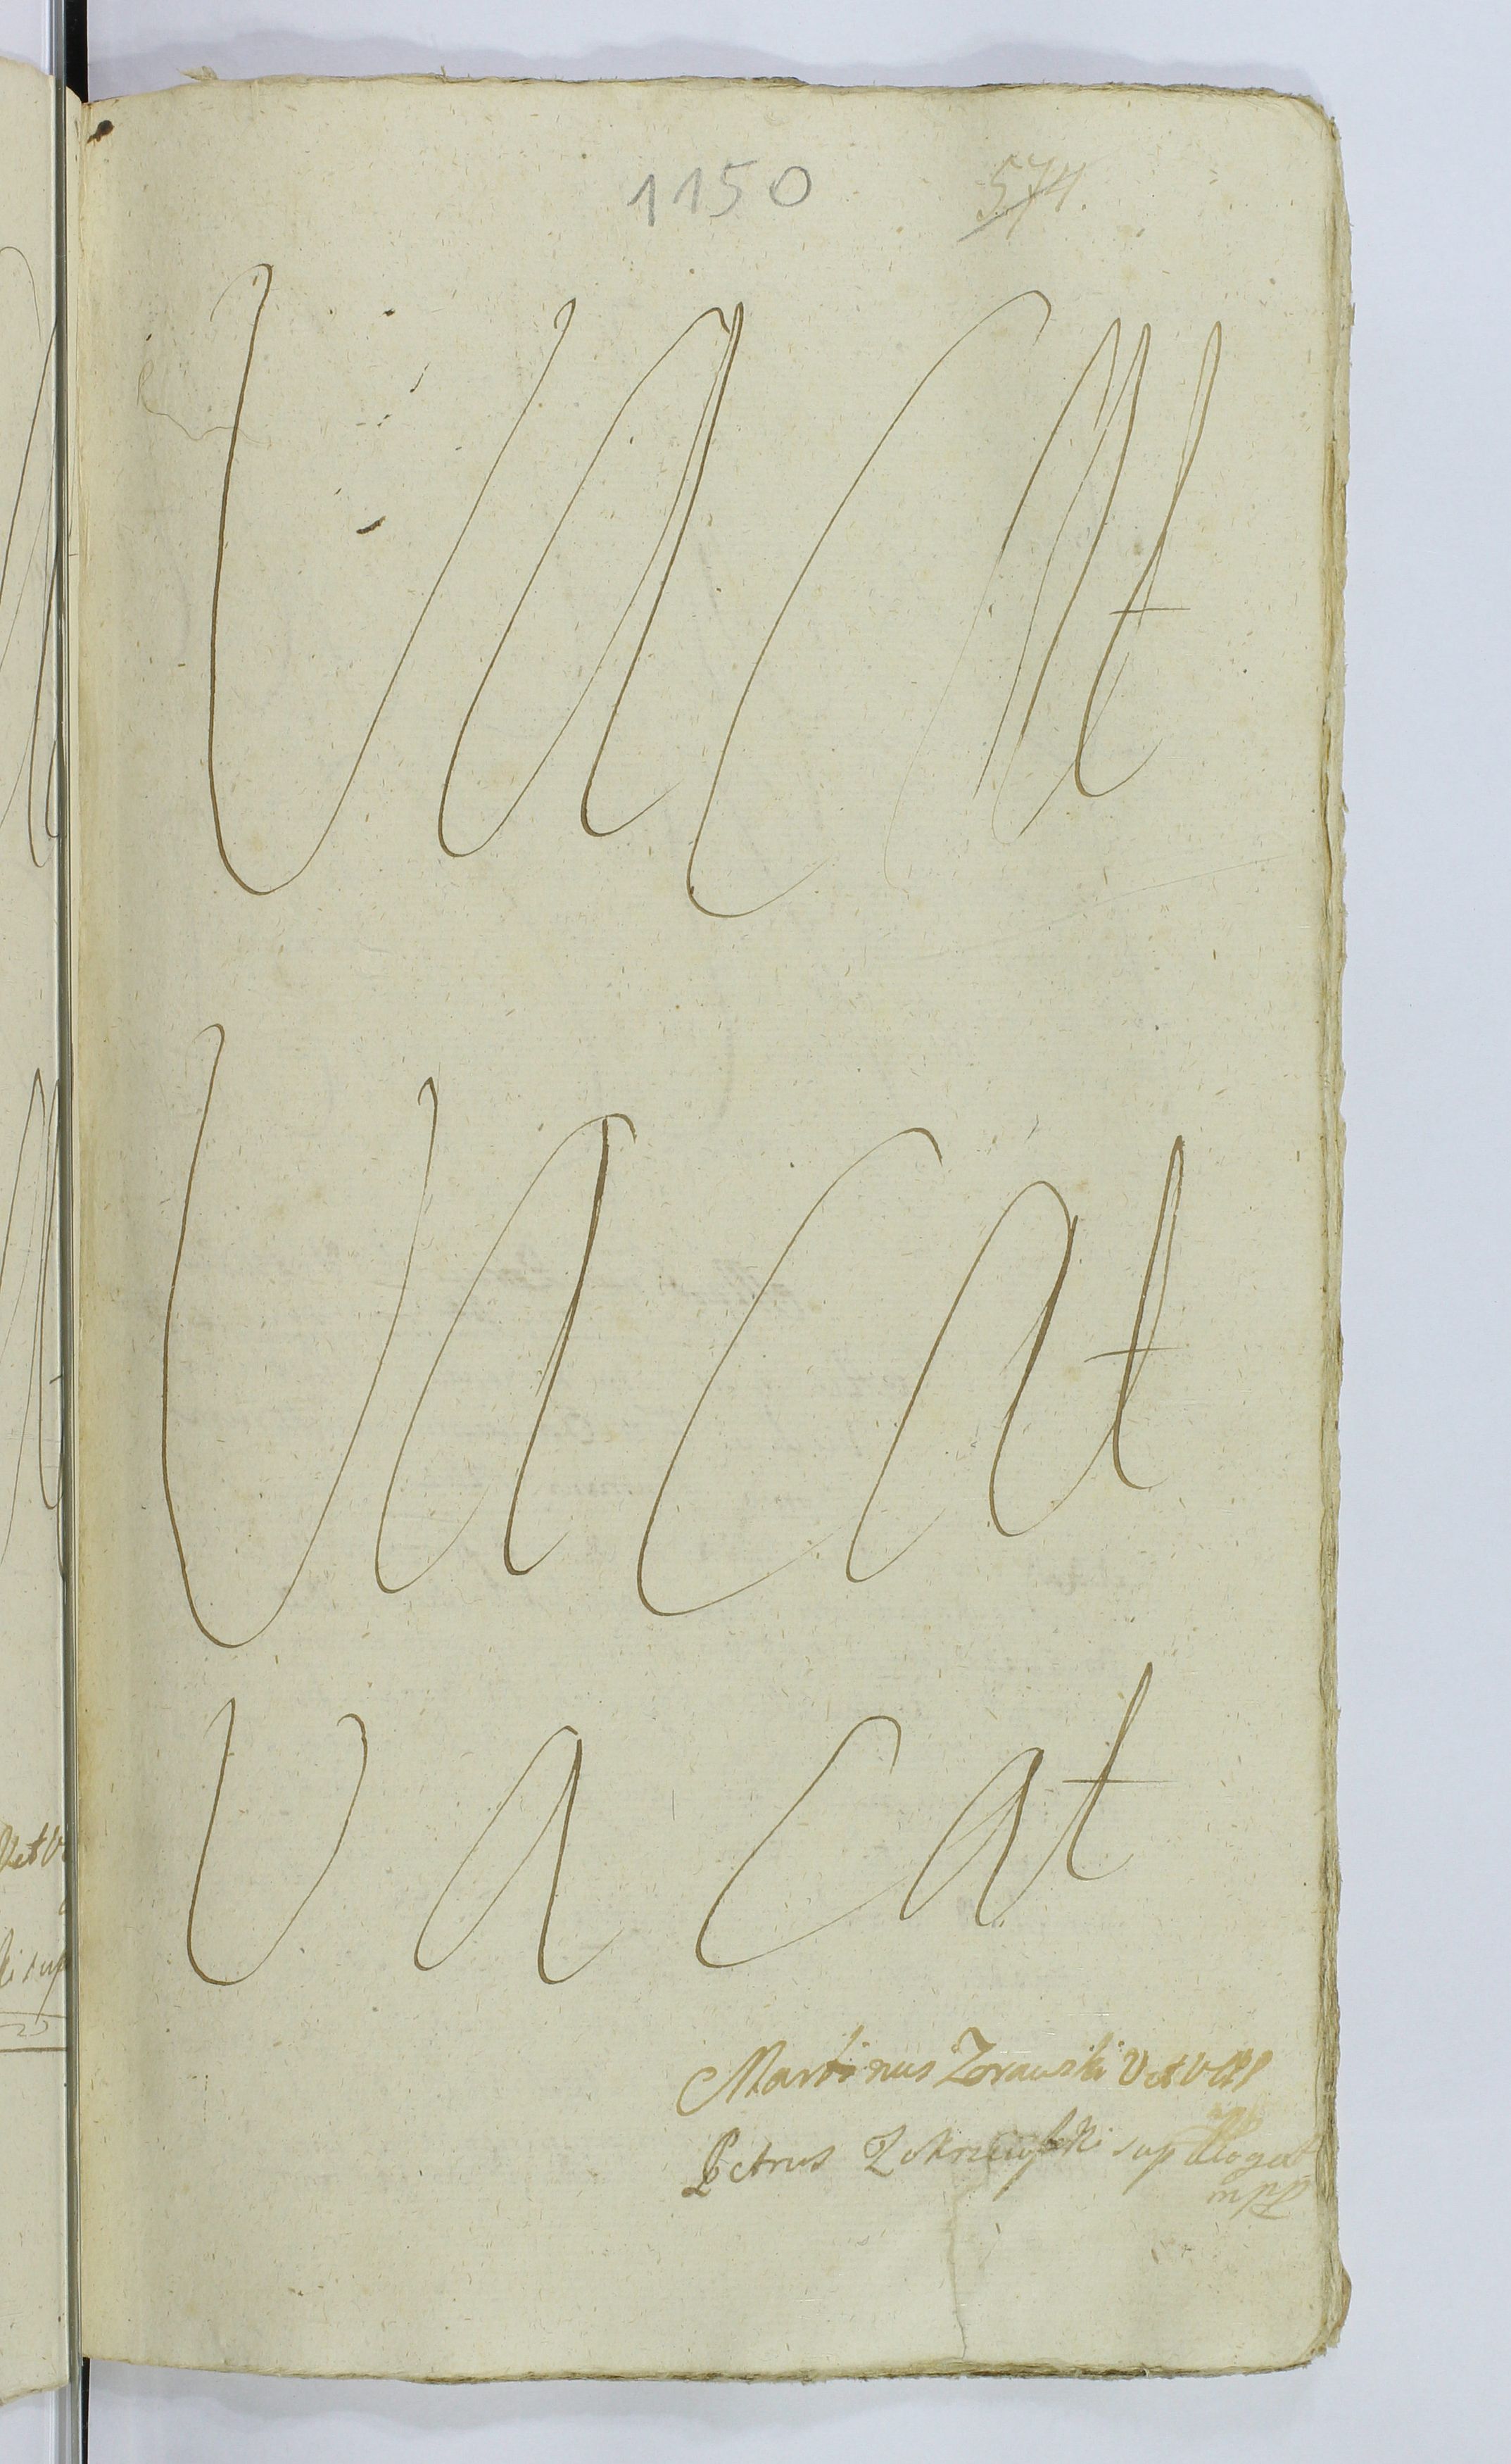 1150 574.
Vacat
Vacat
Vacat
Martinus Zorawski V et V
Petrus Zakrzewski sup
mpp